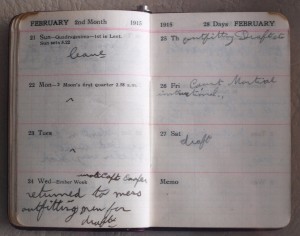 FEBRUARY 2nd Month 1915
21 Sun—Quadragesima—1st in Lent.
leave
22 Mon—☽ Moon's first quarter 2.58 a.m.
^
23 Tues
^
24 Wed—Ember Week
Capt Cooper
returned to mess
outfitting men for
drafts
1915 28 Days FEBRUARY
25 Th outfitting Drafts
26 Fri Court Martial
27 Sat
draft
Memo